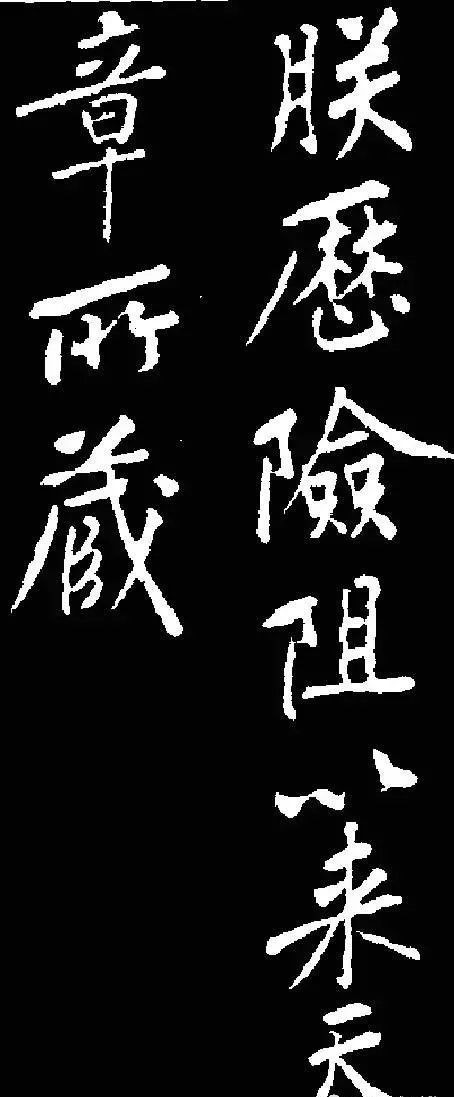 朕歷險阻以来天
章所藏